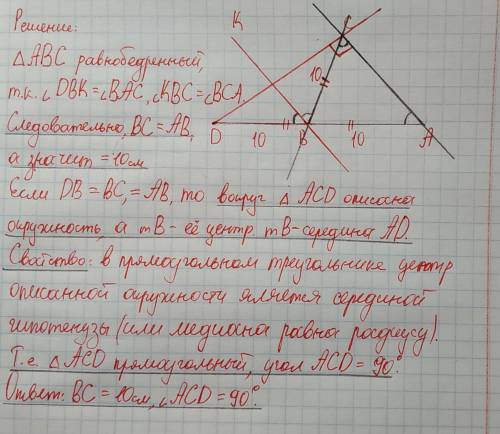 Решение:
△ABC равнобедренный,
т.к. ∠DBK=∠BAC, ∠KBC=∠BCA.
Следовательно, BC=AB,
а значит =10см
Если DB=BC,=AB, то вокруг △ACD описана
окружность, а тB- её центр. тB-середина AD.
Свойство: в прямоугольном треугольнике центр
описанной окружности является серединой
гипотенузы (или медиана равна радиусу).
Т.е. △ACD прямоугольный, угол ACD=90°.
Ответ: BC=10см, ∠ACD=90°.
K
C
10
D
10
B
10
A